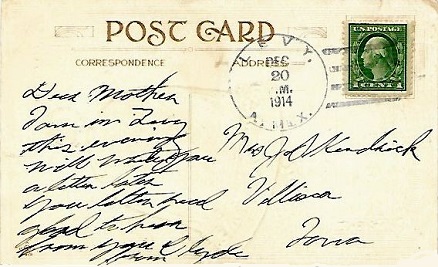 POST CARD
CORRESPONDENCE
ADDRESS
LEVY,
DEC
20
M.
1914
N. MEX.
U.S. POSTAGE
1 CENT 1
Dear Mother
Am in Levy
this evening
will write you
a letter later
your letter recd
glad to hear
from you Clyde
from
Mrs J A Kendrick
Villisca
Iowa